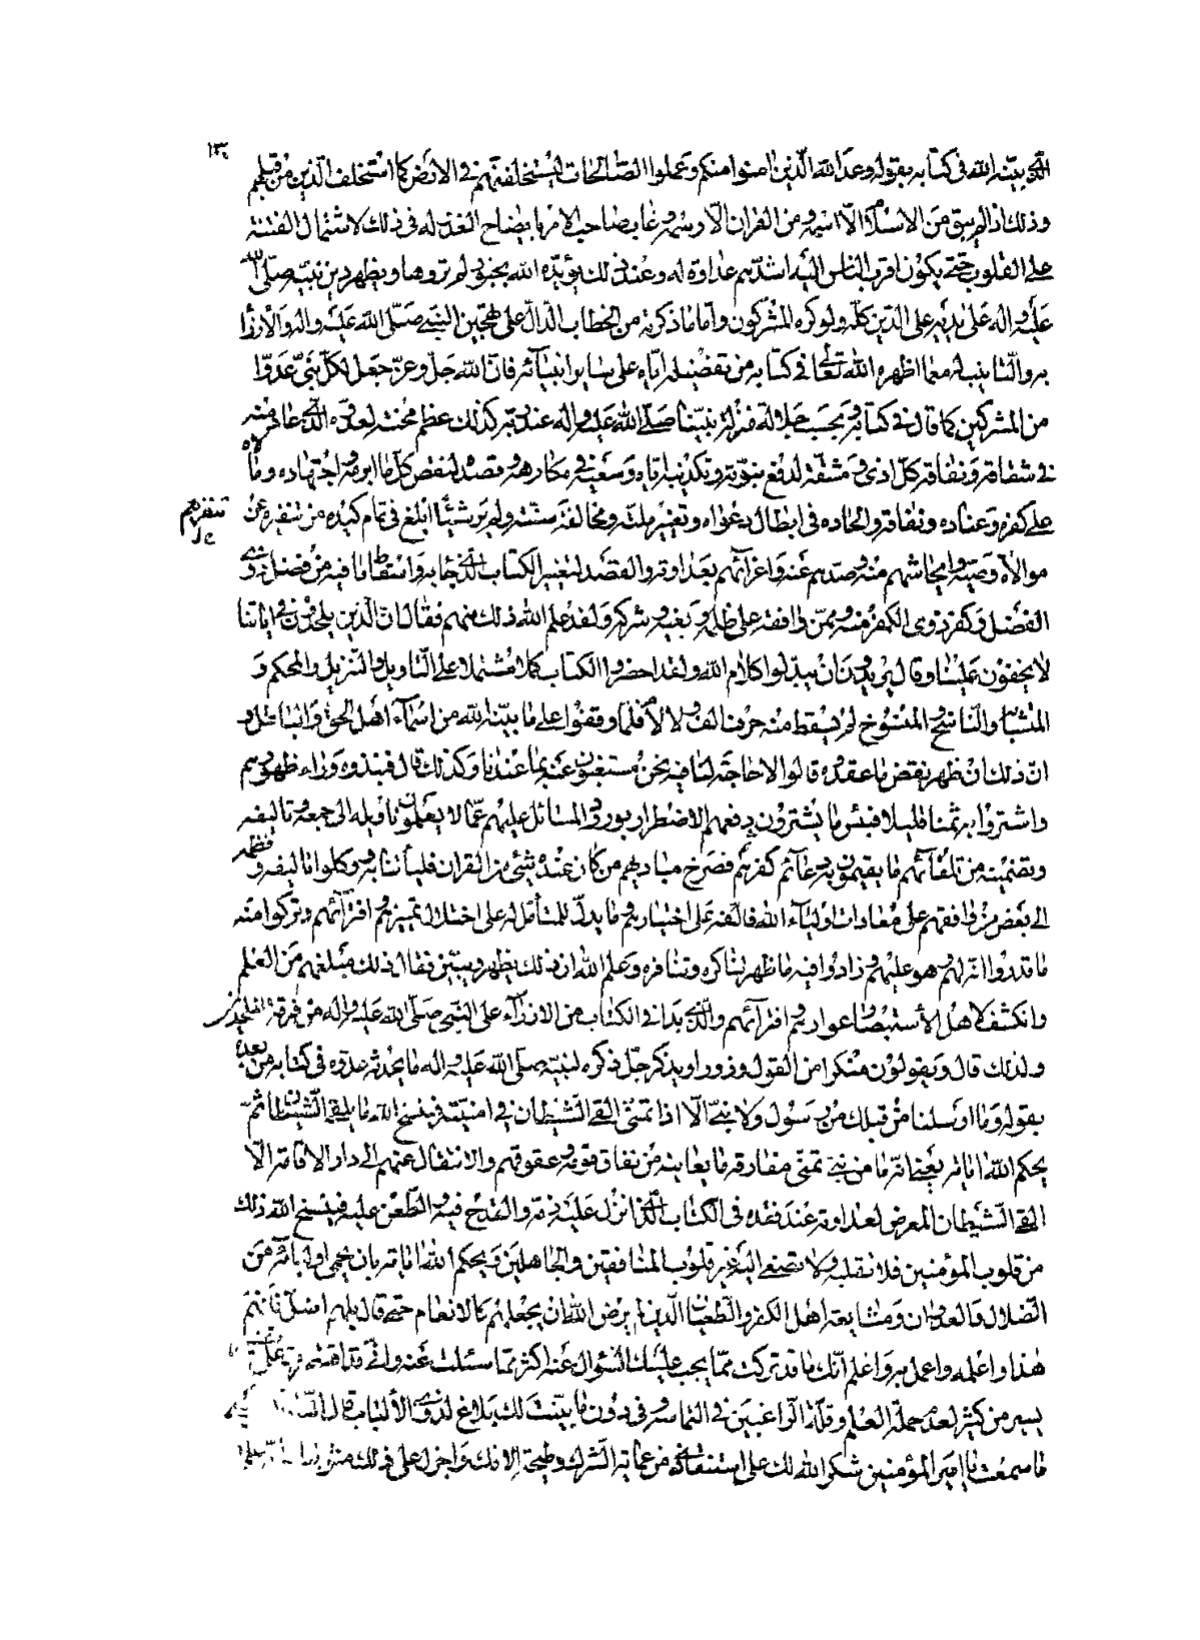 ١٣٤
الذي بيّنه الله في كتابه بقوله وعد الله الّذين امنوا منكم وعملوا الصّالحات ليستخلفنّهم في الارض كما استخلف الّذين من قبلهم
وذلك اذا لم يبق من الاسلام الّا اسمه ومن القران الّا رسمه وغاب صاحب الامر بايضاح الغدر له في ذلك لاشتمال الفتنة
على القلوب حتّى يكون اقرب الناس اليه اشدّهم عداوة له وعند ذلك يؤيّده الله بجنود لم تروها ويظهر دين نبيّه صلّى الله
عليه واله على يديه على الدّين كلّه ولو كره المشركون وامّا ما ذكرته من الخطاب الدّالّ على تهجين النبيّ صلّى الله عليه واله والازراء
به والتّانيب له مع ما اظهره الله تعالى في كتابه من تفضيله ايّاه على ساير انبيائه فانّ الله جلّ وعزّ جعل لكلّ نبيّ عدوّا
من المشركين كما قال في كتابه وبحسب جلالة منزلة نبيّنا صلّى الله عليه واله عند ربّه كذلك عظم محنته لعدوّه الّذي عاد منه
في شقاقه ونفاقه كلّ اذى ومشقّة لدفع نبوّته وتكذيبه ايّاه وسعيه في مكارهه وقصده لنقض كلّ ما ابرمه واجتهاده ومن مالاه
على كفره وعناده ونفاقه والحاده في ابطال دعواه وتغيير ملّته ومخالفة سنّته ولم ير شيئا ابلغ في تمام كيده من تنفيره عن
تنفيرهم
موالاة وصيّه وايحاشهم منه وصدّهم عنه واغرائهم بعداوته والقصد لتغيير الكتاب الّذي جاء به واسقاط ما فيه من فضل ذوي
الفضل وكفر ذوي الكفر منه وممّن وافقه على ظلمه وبغيه وشركه ولقد علم الله ذلك منهم فقال انّ الّذين يلحدون في اياتنا
لا يخفون علينا وقال يريدون ان يبدّلوا كلام الله ولقد احضروا الكتاب كملا مشتملا على التّاويل والتّنزيل والمحكم و
المتشابه والنّاسخ والمنسوخ لم يسقط منه حرف الف ولا لام فلمّا وقفوا على ما بيّنه الله من اسماء اهل الحقّ والباطل و
انّ ذلك ان ظهر نقض ما عقدوه قالوا لا حاجة لنا فيه نحن مستغنون عنه بما عندنا وكذلك قال فنبذوه وراء ظهورهم
واشتروا به ثمنا قليلا فبئس ما يشترون دفعهم الاضطرار بورود المسائل عليهم عمّا لا يعلمون تاويله الى جمعه وتاليفه
وتضمينه من تلقائهم ما يقيمون به دعائم كفرهم فصرخ مناديهم من كان عنده شيئ من القران فلياتنا به ووكلوا تاليفه ونظمه
الى بعض من وافقهم على معادات اولياء الله فالّفه على اختيارهم وما يدلّ للمتامّل له على اختلال تمييزهم وافترائهم وتركوا منه
ما قدروا انّه لهم وهو عليهم وزادوا فيه ما ظهر تناكره وتنافره وعلم الله ان ذلك يظهر ويبيّن فقال ذلك مبلغهم من العلم
وانكشف لاهل الاستبصار عوارهم وافترائهم والّذي بدا في الكتاب من الازراء على النّبي صلّى الله عليه واله من فرقة الملحدين
ولذلك قال ويقولون منكرا من القول وزورا ويذكر جلّ ذكره لنبيّه صلّى الله عليه واله ما يحدثه عدوّه في كتابه من بعده
بقوله وما ارسلنا من قبلك من رسول ولا نبيّ الّا اذا تمنّى القى الشّيطان في امنيّته فينسخ الله ما يلقى الشّيطان ثمّ
يحكم الله اياته يعني انّه ما من نبيّ تمنّى مفارقة ما يعاينه من نفاق قومه وعقوقهم والانتقال عنهم الى دار الاقامة الّا
القى الشّيطان المعرض لعداوته عند فقده في الكتاب الّذي انزل عليه ذمّه والقدح فيه والطّعن عليه فينسخ الله ذلك
من قلوب المؤمنين فلا تقبله ولا تصغى اليه غير قلوب المنافقين والجاهلين ويحكم الله اياته بان يحمي اوليائه من
الضّلال والعدوان ومشايعة اهل الكفر والطّغيان الّذين لم يرض الله ان يجعلهم كالانعام حتّى قال بل هم اضلّ فافهم
هذا واعلمه واعمل به واعلم انّك ما قد تركت ممّا يجب عليك السّؤال عنه اكثر ممّا سئلت عنه وانّي قد اقتصرت على
يسير من كثير لعدم حملة العلم وقلّة الرّاغبين في التماسه وفي دون ما بيّنت لك بلاغ لذوي الالباب قال
ما سمعت يا امير المؤمنين شكر الله لك على استنقاذي من عماية الشّرك وطخية الافك واجزل على ذلك مثوبتك